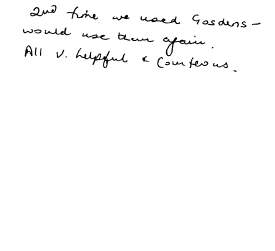 2nd time we used Gosdens -
would use them again.
All v. helpful & courteous.